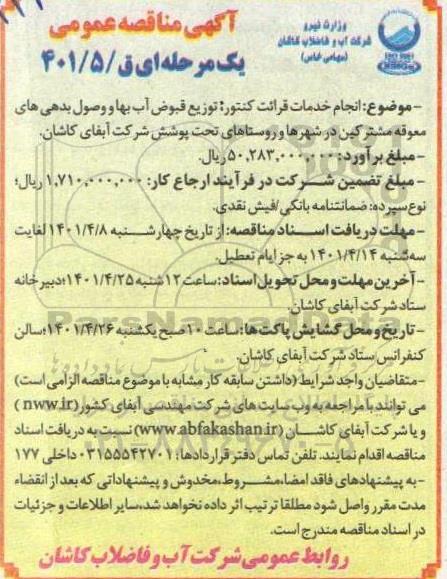 آگهی مناقصه عمومی
یک مرحله‌ای ق/۴۰۱/۵
وزارت نیرو
شرکت آب و فاضلاب کاشان
(سهامی خاص)
-موضوع: انجام خدمات قرائت کنتور؛ توزیع قبوض آب بها و وصول بدهی های
معوقه مشترکین در شهرها و روستاهای تحت پوشش شرکت آبفای کاشان.
-مبلغ برآورد: ۵۰,۲۸۳,۰۰۰,۰۰۰ ریال.
- مبلغ تضمین شرکت در فرآیند ارجاع کار: ۱,۷۱۰,۰۰۰,۰۰۰ ریال؛
نوع سپرده: ضمانتنامه بانکی/فیش نقدی.
-مهلت دریافت اسناد مناقصه: از تاریخ چهارشنبه ۱۴۰۱/۴/۸ لغایت
سه‌شنبه ۱۴۰۱/۴/۱۴ به جز ایام تعطیل.
-آخرین مهلت و محل تحویل اسناد: ساعت ۱۲ شنبه ۱۴۰۱/۴/۲۵؛ دبیرخانه
ستاد شرکت آبفای کاشان.
-تاریخ و محل گشایش پاکت‌ها: ساعت ۱۰ صبح یکشنبه ۱۴۰۱/۴/۲۶؛ سالن
کنفرانس ستاد شرکت آبفای کاشان.
-متقاضیان واجد شرایط (داشتن سابقه کار مشابه با موضوع مناقصه الزامی است)
می توانند با مراجعه به وب سایت های شرکت مهندسی آبفای کشور (nww.ir)
و یا شرکت آبفای کاشان (www.abfakashan.ir) نسبت به دریافت اسناد
مناقصه اقدام نمایند. تلفن تماس دفتر قراردادها: ۰۳۱۵۵۵۴۲۷۰۱ داخلی ۱۷۷
-به پیشنهادهای فاقد امضاء، مشروط، مخدوش و پیشنهاداتی که بعد از انقضاء
مدت مقرر واصل شود مطلقا ترتیب اثر داده نخواهد شد، سایر اطلاعات و جزئیات
در اسناد مناقصه مندرج است.
روابط عمومی شرکت آب و فاضلاب کاشان